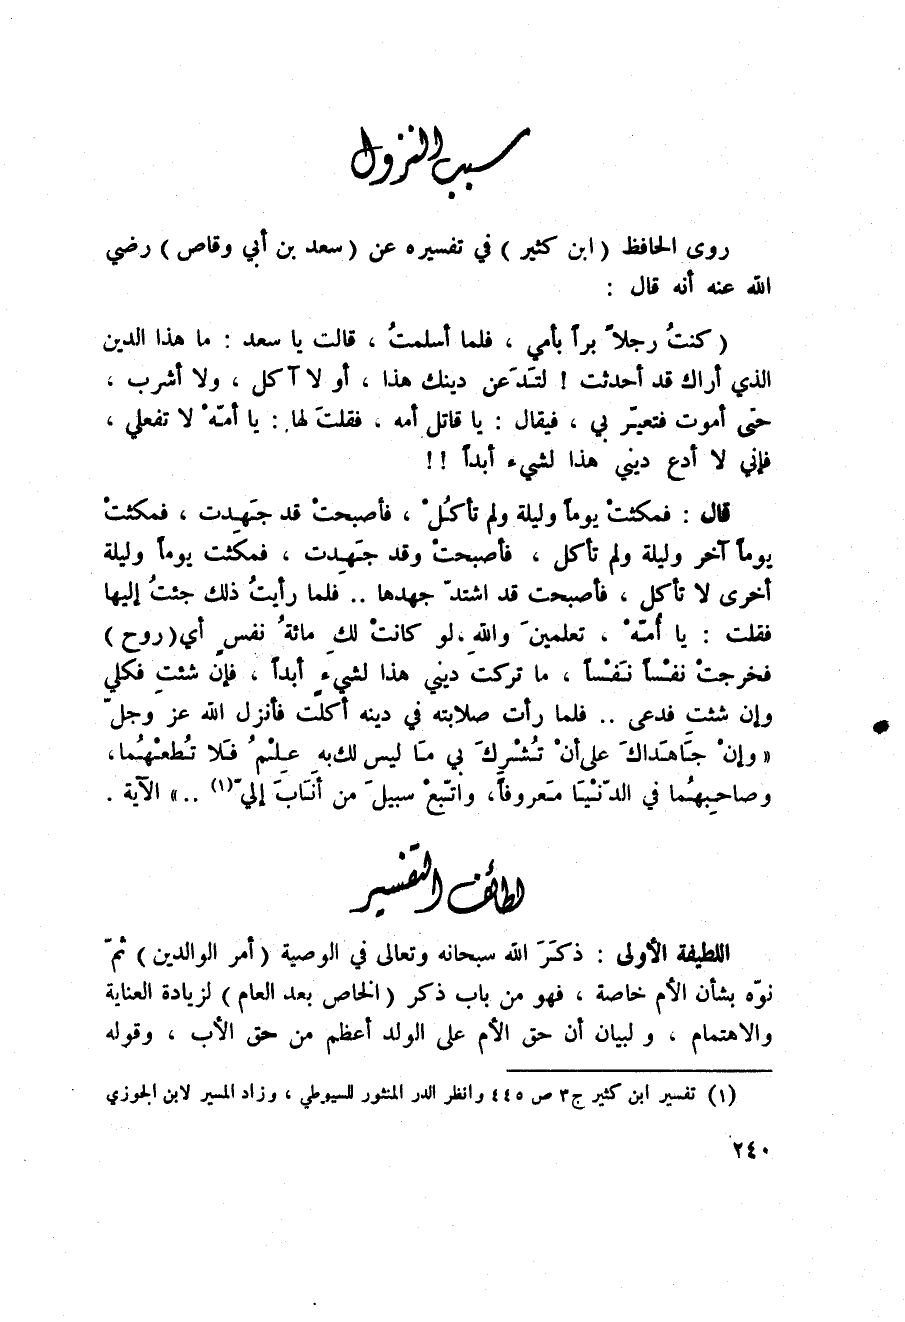 سبب النزول
روى الحافظ ( ابن كثير ) في تفسيره عن ( سعد بن أبي وقاص ) رضي
الله عنه أنه قال :
( كنتُ رجلاً براً بأمي ، فلما أسلمتُ ، قالت يا سعد : ما هذا الدين
الذي أراك قد أحدثت ! لتَدَعن دينك هذا ، أو لا آكل ، ولا أشرب ،
حتى أموت فتعيّر بي ، فيقال : يا قاتل أمه ، فقلتَ لها : يا أمّهْ لا تفعلي ،
فإني لا أدع ديني هذا لشيء أبداً !!
قال : فمكثتْ يوماً وليلة ولم تأكُلْ ، فأصبحتْ قد جَهِدت ، فمكثتْ
يوماً آخر وليلة ولم تأكل ، فأصبحتْ وقد جَهِدت ، فمكثت يوماً وليلة
أخرى لا تأكل ، فأصبحت قد اشتدّ جهدها .. فلما رأيتُ ذلك جئتُ إليها
فقلت : يا أُمّهْ ، تعلمينَ واللهِ ، لو كانتْ لكِ مائةُ نفسٍ أي ( روح )
فخرجتْ نفْساً نَفْساً ، ما تركت ديني هذا لشيءٍ أبداً ، فإن شئتِ فكلي
وإن شئتِ فدعى .. فلما رأت صلابته في دينه أكلت فأنزل الله عز وجلّ
« وإنْ جَاهَداكَ على أنْ تُشْرِكَ بي مَا ليس لك به عِلْمُ فَلا تُطعْهُما،
وصاحِبهُما في الدّنْيَا مَعروفاً، واتّبعْ سبيلَ من أنَابَ إليّ(١) ..» الآية .
لطائف التفسير
اللطيفة الأولى : ذكَرَ الله سبحانه وتعالى في الوصية ( أمر الوالدين ) ثمّ
نوّه بشأن الأم خاصة ، فهو من باب ذكر ( الخاص بعد العام ) لزيادة العناية
والاهتمام ، و لبيان أن حق الأم على الولد أعظم من حق الأب ، وقوله
(١) تفسير ابن كثير ج٣ ص ٤٤٥ وانظر الدر المنثور للسيوطي ، وزاد المسير لابن الجوزي
٢٤٠